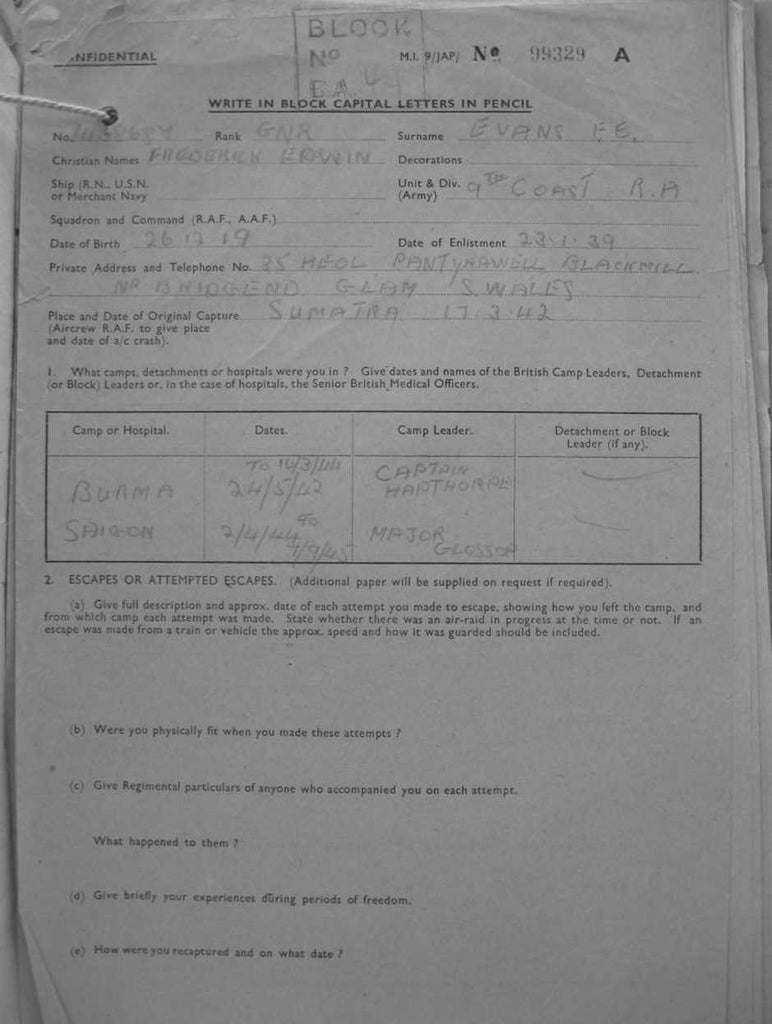 BLOCK
No
NFIDENTIAL
M.I. 9/JAP/ No. 99329 A
WRITE IN BLOCK CAPITAL LETTERS IN PENCIL
No. Rank GNR Surname EVANS F.E.
Christian Names FREDERICK EDWIN Decorations
Ship (R.N., U.S.N. or Merchant Navy
Unit & Div. (Army) 9TH COAST R.A
Squadron and Command (R.A.F., A.A.F.)
Date of Birth 26 12 19 Date of Enlistment 23.1.39
Private Address and Telephone No. 35 HEOL PANTYRAWELL BLACKMILL
NR BRIDGEND GLAM S. WALES
Place and Date of Original Capture SUMATRA 17.3.42
(Aircrew R.A.F. to give place
and date of a/c crash).
1. What camps, detachments or hospitals were you in ? Give dates and names of the British Camp Leaders, Detachment
(or Block) Leaders or, in the case of hospitals, the Senior British Medical Officers.
Camp or Hospital. Dates. Camp Leader. Detachment or Block
Leader (if any).
TO 14/3/44 CAPTAIN
BURMA 24/5/42 HAPTHORPE
SAIGON 2/4/44 TO MAJOR
7/9/45 GLOSSOP
2. ESCAPES OR ATTEMPTED ESCAPES. (Additional paper will be supplied on request if required).
(a) Give full description and approx. date of each attempt you made to escape, showing how you left the camp, and
from which camp each attempt was made. State whether there was an air-raid in progress at the time or not. If an
escape was made from a train or vehicle the approx. speed and how it was guarded should be included.
(b) Were you physically fit when you made these attempts ?
(c) Give Regimental particulars of anyone who accompanied you on each attempt.
What happened to them ?
(d) Give briefly your experiences during periods of freedom.
(e) How were you recaptured and on what date ?